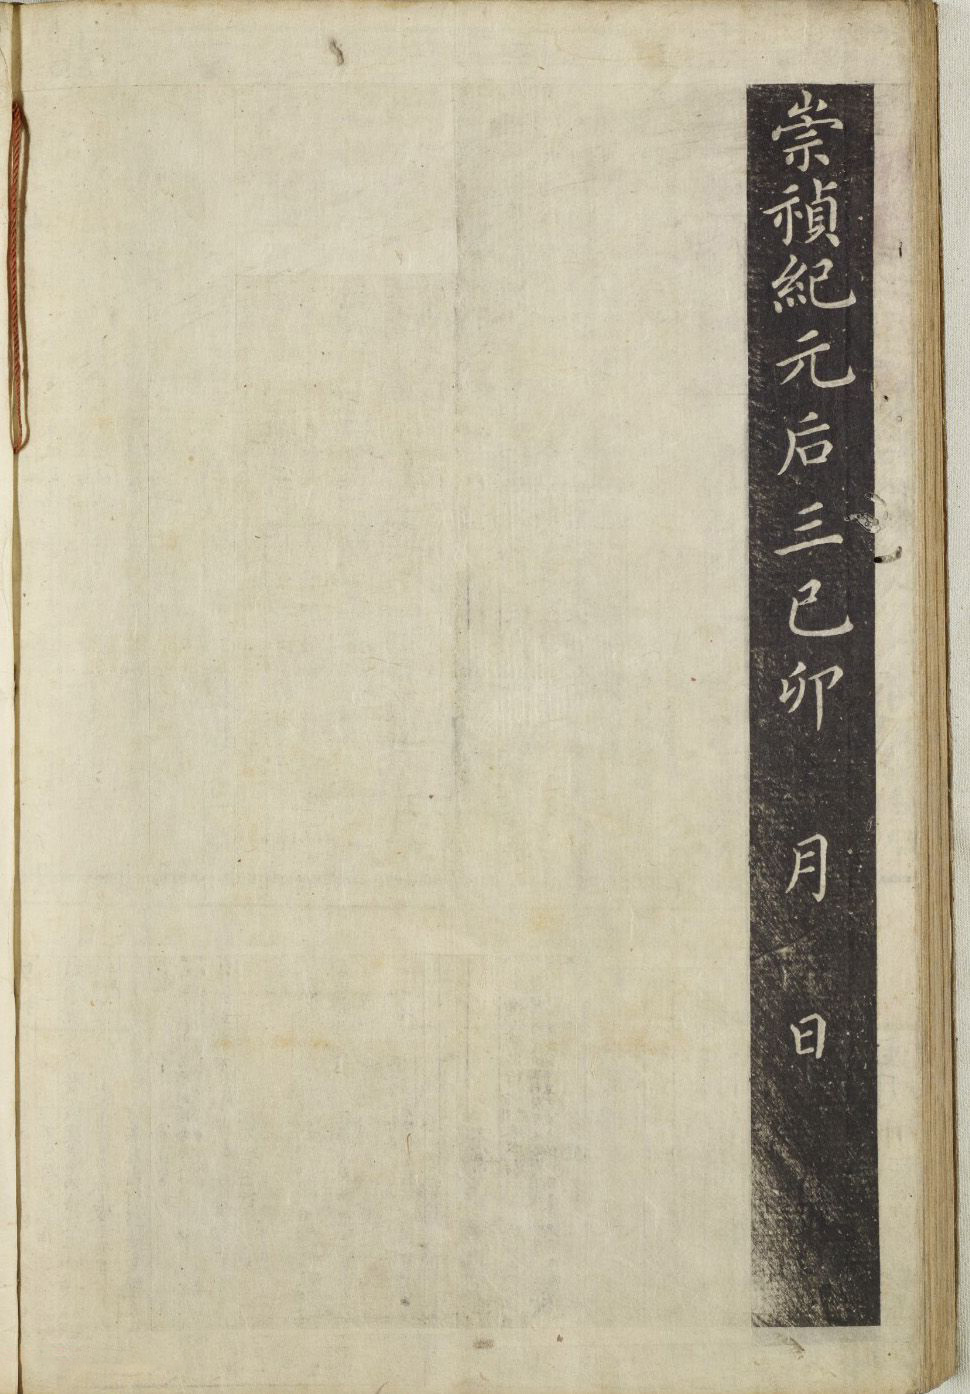 崇禎紀元后三己卯　月　日